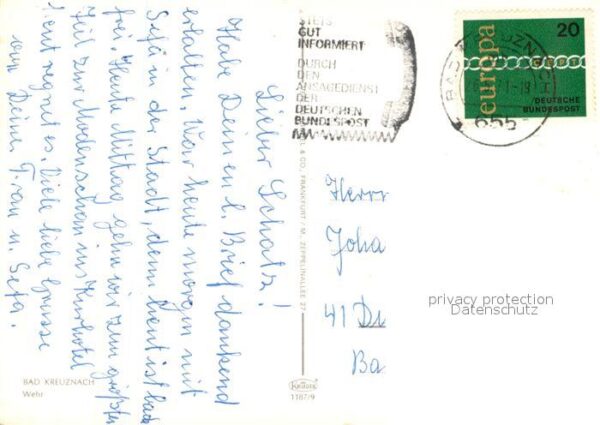 Lieber Schatz!
Habe Deinen l. Brief dankend
erhalten. War heute morgen mit
Sefa in der Stadt, denn heut ist bade
frei. Heute Mittag gehn wir zum größten
Teil zur Modenschau ins Kurhotel
heut regnet es. Viele liebe Grüsse
von Deiner Frau u. Sefa.
BAD KREUZNACH
Wehr
STETS
GUT
INFORMIERT
DURCH
DEN
ANSAGEDIENST
DER
DEUTSCHEN
BUNDESPOST
europa
20
DEUTSCHE
BUNDESPOST
BAD KREUZNACH
655
& CO., FRANKFURT / M., ZEPPELINALLEE 27
Krüger
1187/9
Herrn
Joha
41 Du
Ba
privacy protection
Datenschutz